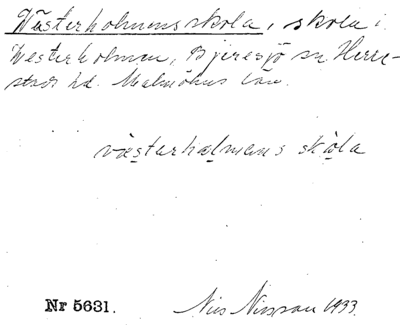 Västerholmens skola, skola i
Westerholmen, Bjeresjö sn Herre-
stads hd. Malmöhus län.
västerhalmans skola
Nr 5631. Nils Nilsson 1933.